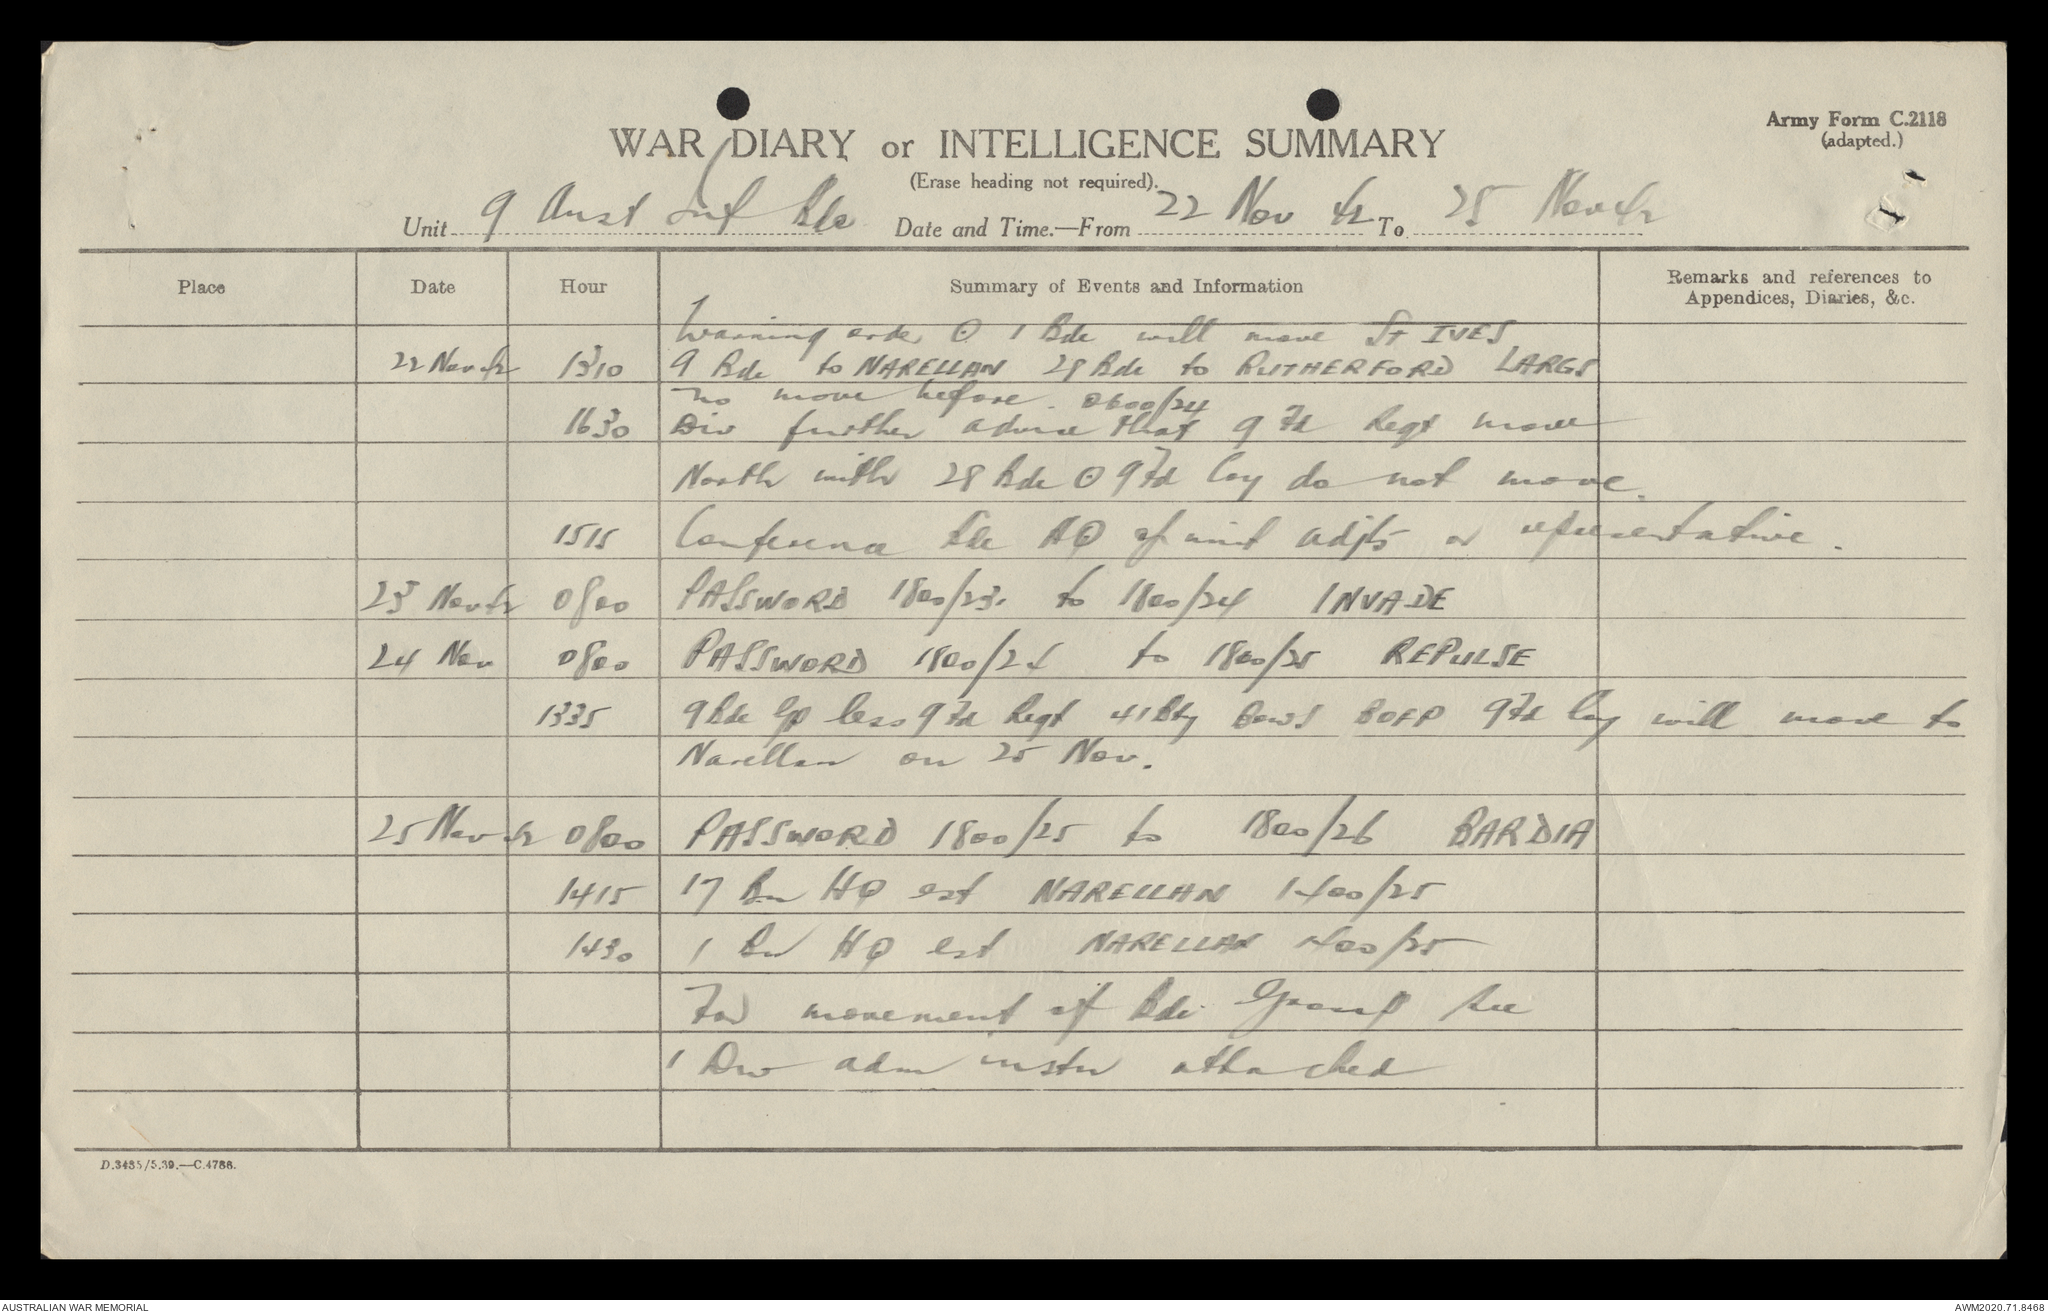 Army Form C.2118
(adapted.)
WAR DIARY or INTELLIGENCE SUMMARY
(Erase heading not required).
Unit 9 Aust Inf Bde Date and Time.—From 22 Nov 42 To 25 Nov 42
Place Date Hour Summary of Events and Information Remarks and references to
Appendices, Diaries, &c.
Warning order ⊙ 1 Bde will move St IVES
22 Nov 42 1310 9 Bde to NARELLAN 28 Bde to RUTHERFORD LARGS
no move before 0600/24
1630 Div further advise that 9 Fd Regt move
North with 28 Bde ⊙ 9 Fd Coy do not move.
1515 Conference Bde HQ of unit adjts or representative.
23 Nov 42 0800 PASSWORD 1800/23. to 1800/24 INVADE
24 Nov 0800 PASSWORD 1800/24 to 1800/25 REPULSE
1335 9 Bde Gp less 9 Fd Regt 41 Bty BOFP 9 Fd Coy will move to
Narellan on 25 Nov.
25 Nov 42 0800 PASSWORD 1800/25 to 1800/26 BARDIA
1415 17 Bn HQ est NARELLAN 1400/25
1430 1 Bn HQ est NARELLAN 1400/25
For movement of Bde Group see
1 Div adm instn attached
D.3485/5.39.—C.4788.
AUSTRALIAN WAR MEMORIAL
AWM2020.71.8468